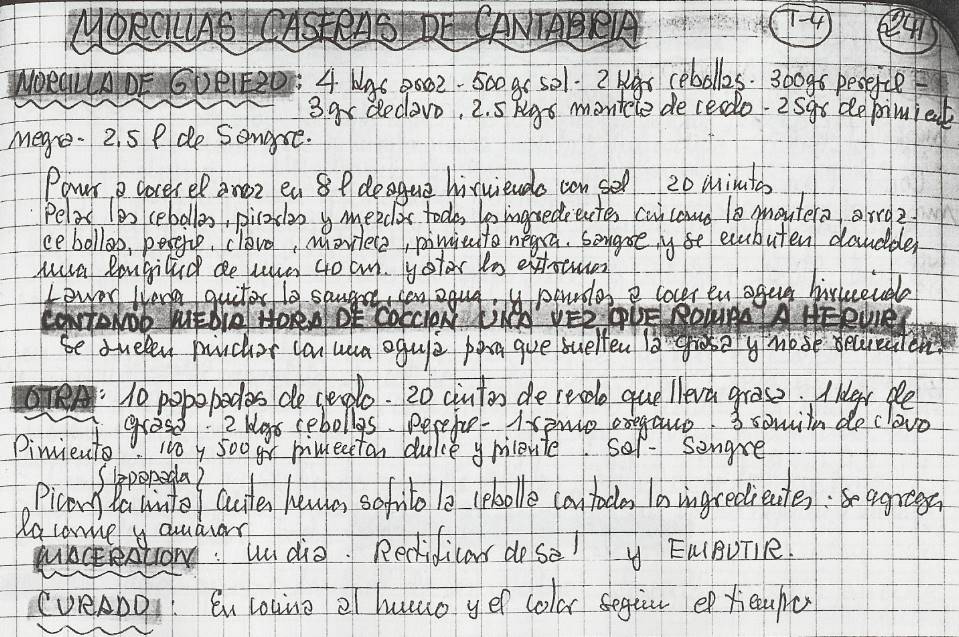 MORCILLAS CASERAS DE CANTABRIA T-4 241
MORCILLA DE GURIEZO: 4 Kgs arroz - 500 gr sal - 2 Kgr cebollas - 300gr perejil -
3 gr de clavo, 2.5 Kgrs manteca de cerdo - 25gr de pimienta
negra - 2,5 l de Sangre.
Poner a cocer el arroz en 8 l de agua hirviendo con sal 20 minutos
Pelar las cebollas, picarlas y mezclar todos los ingredientes como la manteca, arroz -
cebollas, perejil, clavo, manteca, pimienta negra. Sangre, y se embuten dandoles
una longitud de unos 40 cm. y atar los extremos
Lavar para quitar la sangre, con agua, y ponerlas a cocer en agua hirviendo
CONTANDO MEDIA HORA DE COCCION UNA VEZ QUE ROMPA A HERVIR
Se suelen pinchar con una aguja para que suelten la grasa y no se revienten.
OTRA: 10 papapadas de cerdo - 20 cintas de cerdo que lleva grasa. 1 Kgr de
grasa - 2 Kgrs cebollas - Perejil - 1 ramo oregano. 3 ramitas de clavo
Pimienta. 100 y 500 gr pimenton dulce y picante. Sal - Sangre
(papada)
Picar la cinta, antes hemos sofrito la cebolla con todos los ingredientes: se agrega
la carne y amasar
MACERACION: un dia. Rectificar de sal y EMBUTIR.
CURADO: En cocina al humo y el calor según el tiempo